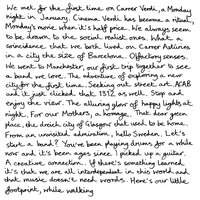 We met for the first time on Carrer Verdi, a Monday
night in January. Cinema Verdi has become a ritual,
Monday's movie when it's half price. We always seem
to be drawn to the social realist ones. What a
coincidence that we both lived on Carrer Astúries
in a city the size of Barcelona. Olfactory senses.
We went to Manchester, our first trip together to see
a band we love. The adventure of exploring a new
city for the first time. Seeking out street art. AFAB
and it just clicked that 1312, as well. Stop and
enjoy the view. The alluring glow of happy lights at
night. For our Mothers, a homage. That dear green
place, the dreich city of Glasgow that used to be home.
From an unrivalled admiration, hello Sweden. Let's
start a band? You've been playing drums for a while
now and it's been ages since I picked up a guitar.
A creative connection. If there's something learned,
it's that we are all interdependent in this world and
that music doesn't need words. Here's our little
footprint, while walking